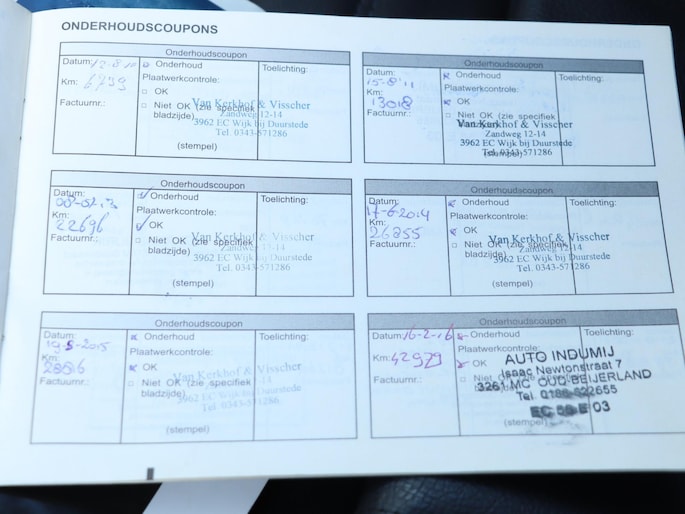 ONDERHOUDSCOUPONS
Onderhoudscoupon
Datum: 12-8-10
Km: 6799
Factuurnr.:
Onderhoud
Plaatwerkcontrole:
OK
Niet OK (zie specifiek
bladzijde)
Toelichting:
Van Kerkhof & Visscher
Zandweg 12-14
3962 EC Wijk bij Duurstede
Tel. 0343-571286
(stempel)
Onderhoudscoupon
Datum:
15-8-'11
Km:
13018
Factuurnr.:
Onderhoud
Plaatwerkcontrole:
OK
Niet OK (zie specifiek
bladzijde)
Toelichting:
Van Kerkhof & Visscher
Zandweg 12-14
3962 EC Wijk bij Duurstede
Tel. 0343-571286
(stempel)
Onderhoudscoupon
Datum:
Km:
22696
Factuurnr.:
Onderhoud
Plaatwerkcontrole:
OK
Niet OK (zie specifiek
bladzijde)
Toelichting:
Van Kerkhof & Visscher
Zandweg 12-14
3962 EC Wijk bij Duurstede
Tel. 0343-571286
(stempel)
Onderhoudscoupon
Datum:
17-6-2014
Km:
26855
Factuurnr.:
Onderhoud
Plaatwerkcontrole:
OK
Niet OK (zie specifiek
bladzijde)
Toelichting:
Van Kerkhof & Visscher
Zandweg 12-14
3962 EC Wijk bij Duurstede
Tel. 0343-571286
(stempel)
Onderhoudscoupon
Datum:
19-5-2015
Km:
Factuurnr.:
Onderhoud
Plaatwerkcontrole:
OK
Niet OK (zie specifiek
bladzijde)
Toelichting:
Van Kerkhof & Visscher
Zandweg 12-14
3962 EC Wijk bij Duurstede
Tel. 0343-571286
(stempel)
Onderhoudscoupon
Datum: 16-2-16
Km: 42979
Factuurnr.:
Onderhoud
Plaatwerkcontrole:
OK
Niet
Toelichting:
AUTO INDUMIJ
Isaac Newtonstraat 7
3261 MC OUD-BEIJERLAND
Tel. 0186-622655
03
(stempel)